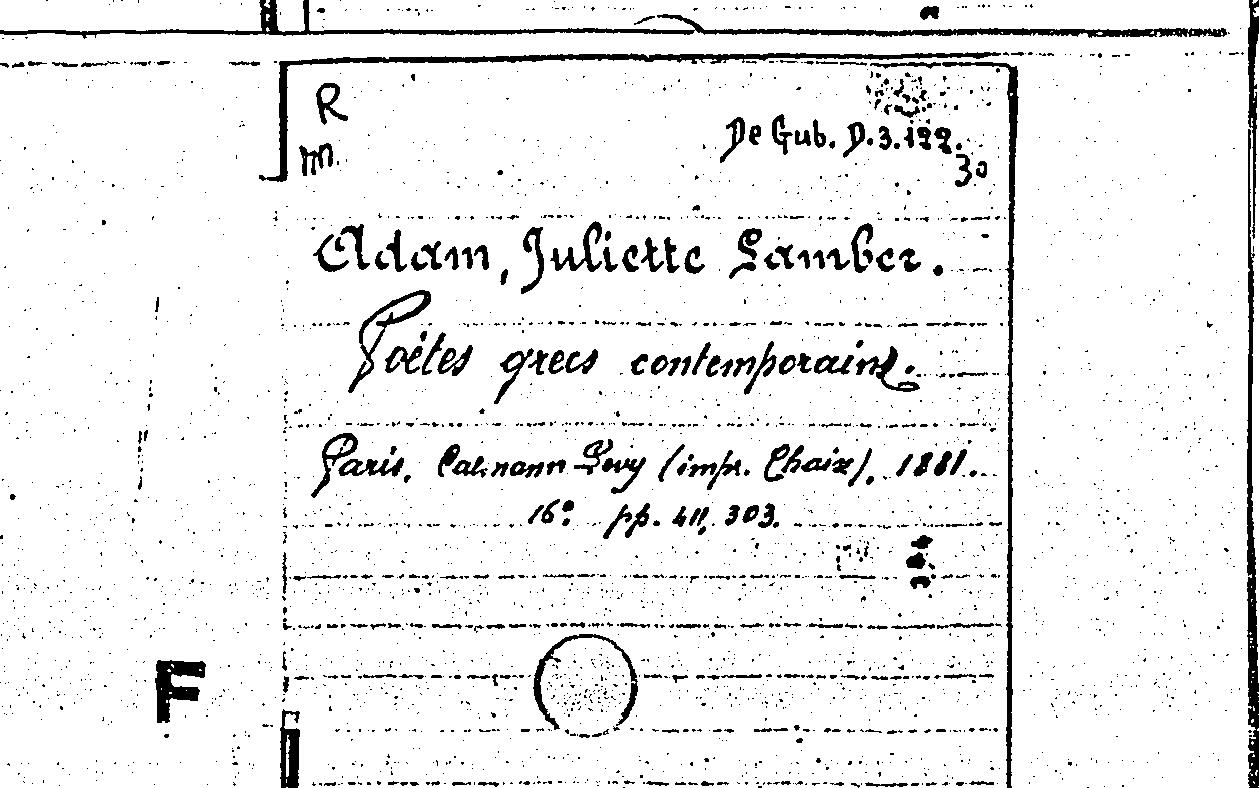 R
m.
De Gub. D.3.122.
30
Adam, Juliette Lamber.
Poètes grecs contemporains.
Paris, Calmann-Levy (impr. Chaix), 1881.
16º. pp. 303.
F